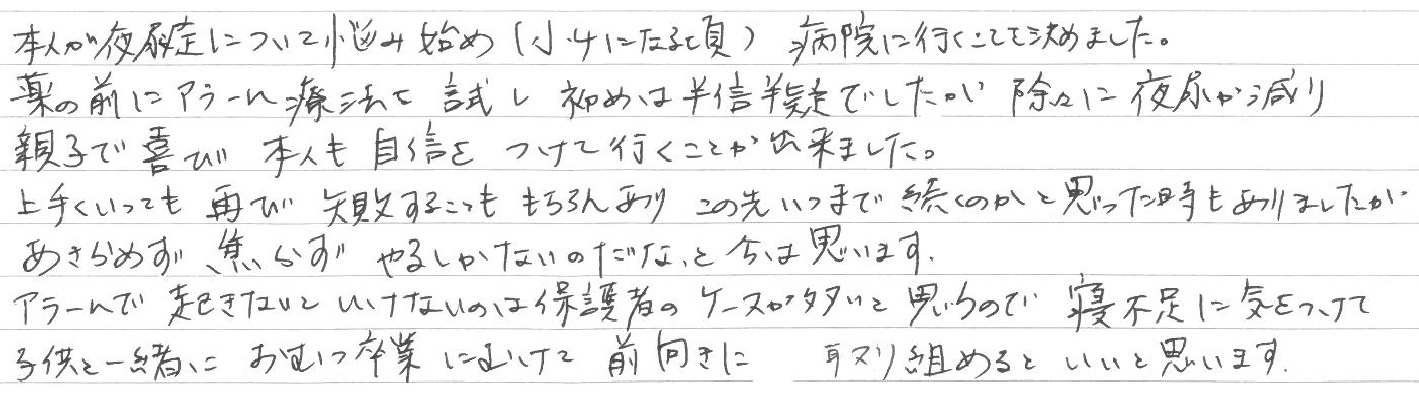 本人が夜尿症について悩み始め（小4になる頃）病院に行くことを決めました。
薬の前にアラーム療法を試し 初めは半信半疑でしたが 除々に夜尿が減り
親子で喜び 本人も自信をつけて行くことが出来ました。
上手くいっても 再び 失敗することも もちろんあり この先いつまで続くのかと思った時もありましたが
あきらめず、焦らず やるしかないのだな、と今は思います。
アラームで 起きないと いけないのは保護者の ケースが多いと 思うので 寝不足に気をつけて
子供と一緒に おむつ卒業 にむけて 前向きに 取り組めると いいと思います。